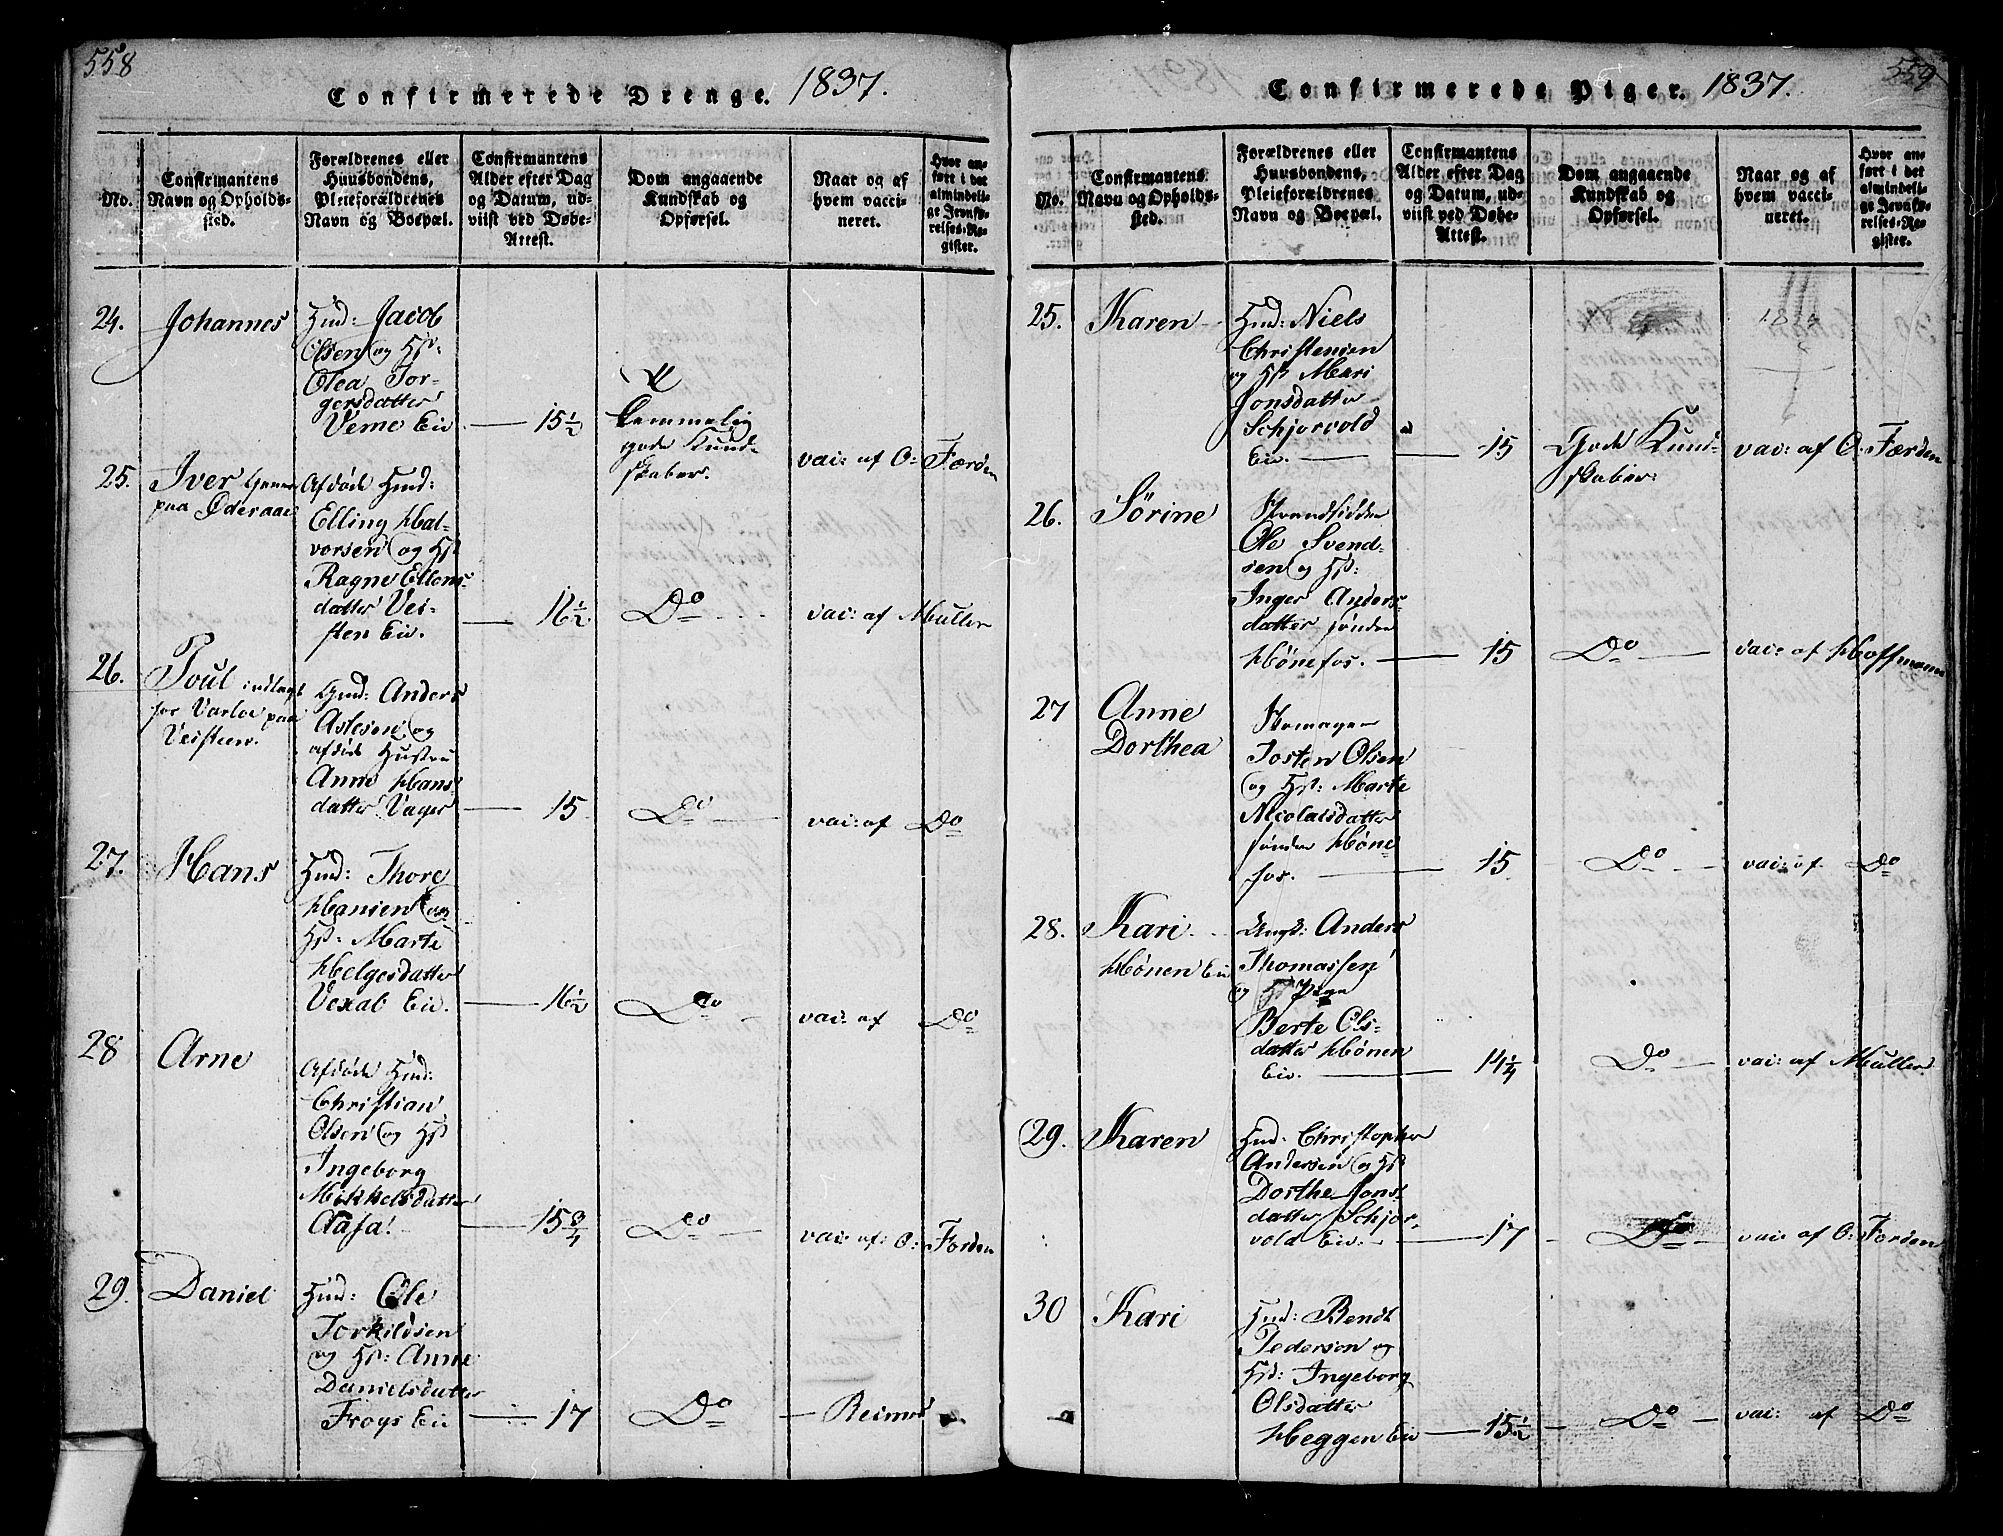 558
Confirmerede Drenge. 1837.
No.
Confirmantens
Navn og Opholds-
sted.
Forældrenes eller
Huusbondens,
Pleieforældrenes
Navn og Boepæl.
Confirmantens
Alder efter Dag
og Datum, ud-
viist ved Døbe-
Attest.
Dom angaaende
Kundskab og
Opførsel.
Naar og af
hvem vacci-
neret.
Hvor an-
ført i det
almindeli-
ge Jevnfø-
relses-Re-
gister.
24.
Johannes
Hud: Jacob
Olsen og Hst:
Olea Tor-
gersdatter
Veme Eie.
15 1/2
Temmelig
gode Kund-
skaber.
vac: af O: Færden
25.
Iver
paa Oderaae
Afdøde Hud:
Elling Hal-
vorsen og Hst
Ragne Ellens-
datter Vei-
sten Eie.
16 1/2
Do
vac: af Muller
26.
Poul indlagt
for Varloe paa
Veisteen.
Gmd: Anders
Astesen og
afdøde Hustru
Anne Hans-
datter Vager
15
Do
vac: af Do
27.
Hans
Hud: Thore
Hansen og
Hst: Marte
Helgesdatter
Vexal Eie.
16 1/2
Do
vac: af Do
28
Arne
Afdøde Hud:
Christian
Olsen og Hst
Ingeborg
Mikkelsdatter
Aasa!
15 3/4
Do
vac: af: O: Forden
29.
Daniel
Hud: Ole
Torkildsen
og Hst: Anne
Danielsdatter
Frøys Eie
17
Do
Reimer
559
Confirmerede Piger. 1837.
No.
Confirmantens
Navn og Opholds-
sted.
Forældrenes eller
Huusbondens,
Pleieforældrenes
Navn og Boepæl.
Confirmantens
Alder efter Dag
og Datum, ud-
viist ved Døbe-
Attest.
Dom angaaende
Kundskab og
Opførsel.
Naar og af
hvem vacci-
neret.
Hvor an-
ført i det
almindeli-
ge Jevnfø-
relses-Re-
gister.
25.
Karen
Hud: Niels
Christensen
og Hst Mari
Jonsdatter
Schjorvold
Eie.
15
Gode Kund-
skaber.
vac: af O: Færden
26.
Sørine
Strandsidder
Ole Svend-
sen og Hst:
Inger Anders-
datter søndre
Hønefos.
15
Do
vac: af Hoffmann
27
Anne
Dorthea
Skomager
Josten Olsen
og Hst: Marte
Nicolaisdatter
søndre Høne-
fos.
15
Do
vac: af Do
28.
Kari
Hønen Eie
Ungk: Anders
Thomassen
og Pige
Berte Ols-
datter Hønen
Eie.
14 1/4
Do
vac: af Muller
29.
Karen
Hud: Christopher
Andersen og Hst
Dorthe Jons-
datter Schjor-
vold Eie.
17
Do
vac: af O: Forden
30
Kari
Hud: Bendt
Pederson og
Hst: Ingeborg
Olsdatter
Heggen Eie
15 1/2
Do
vac: af Do